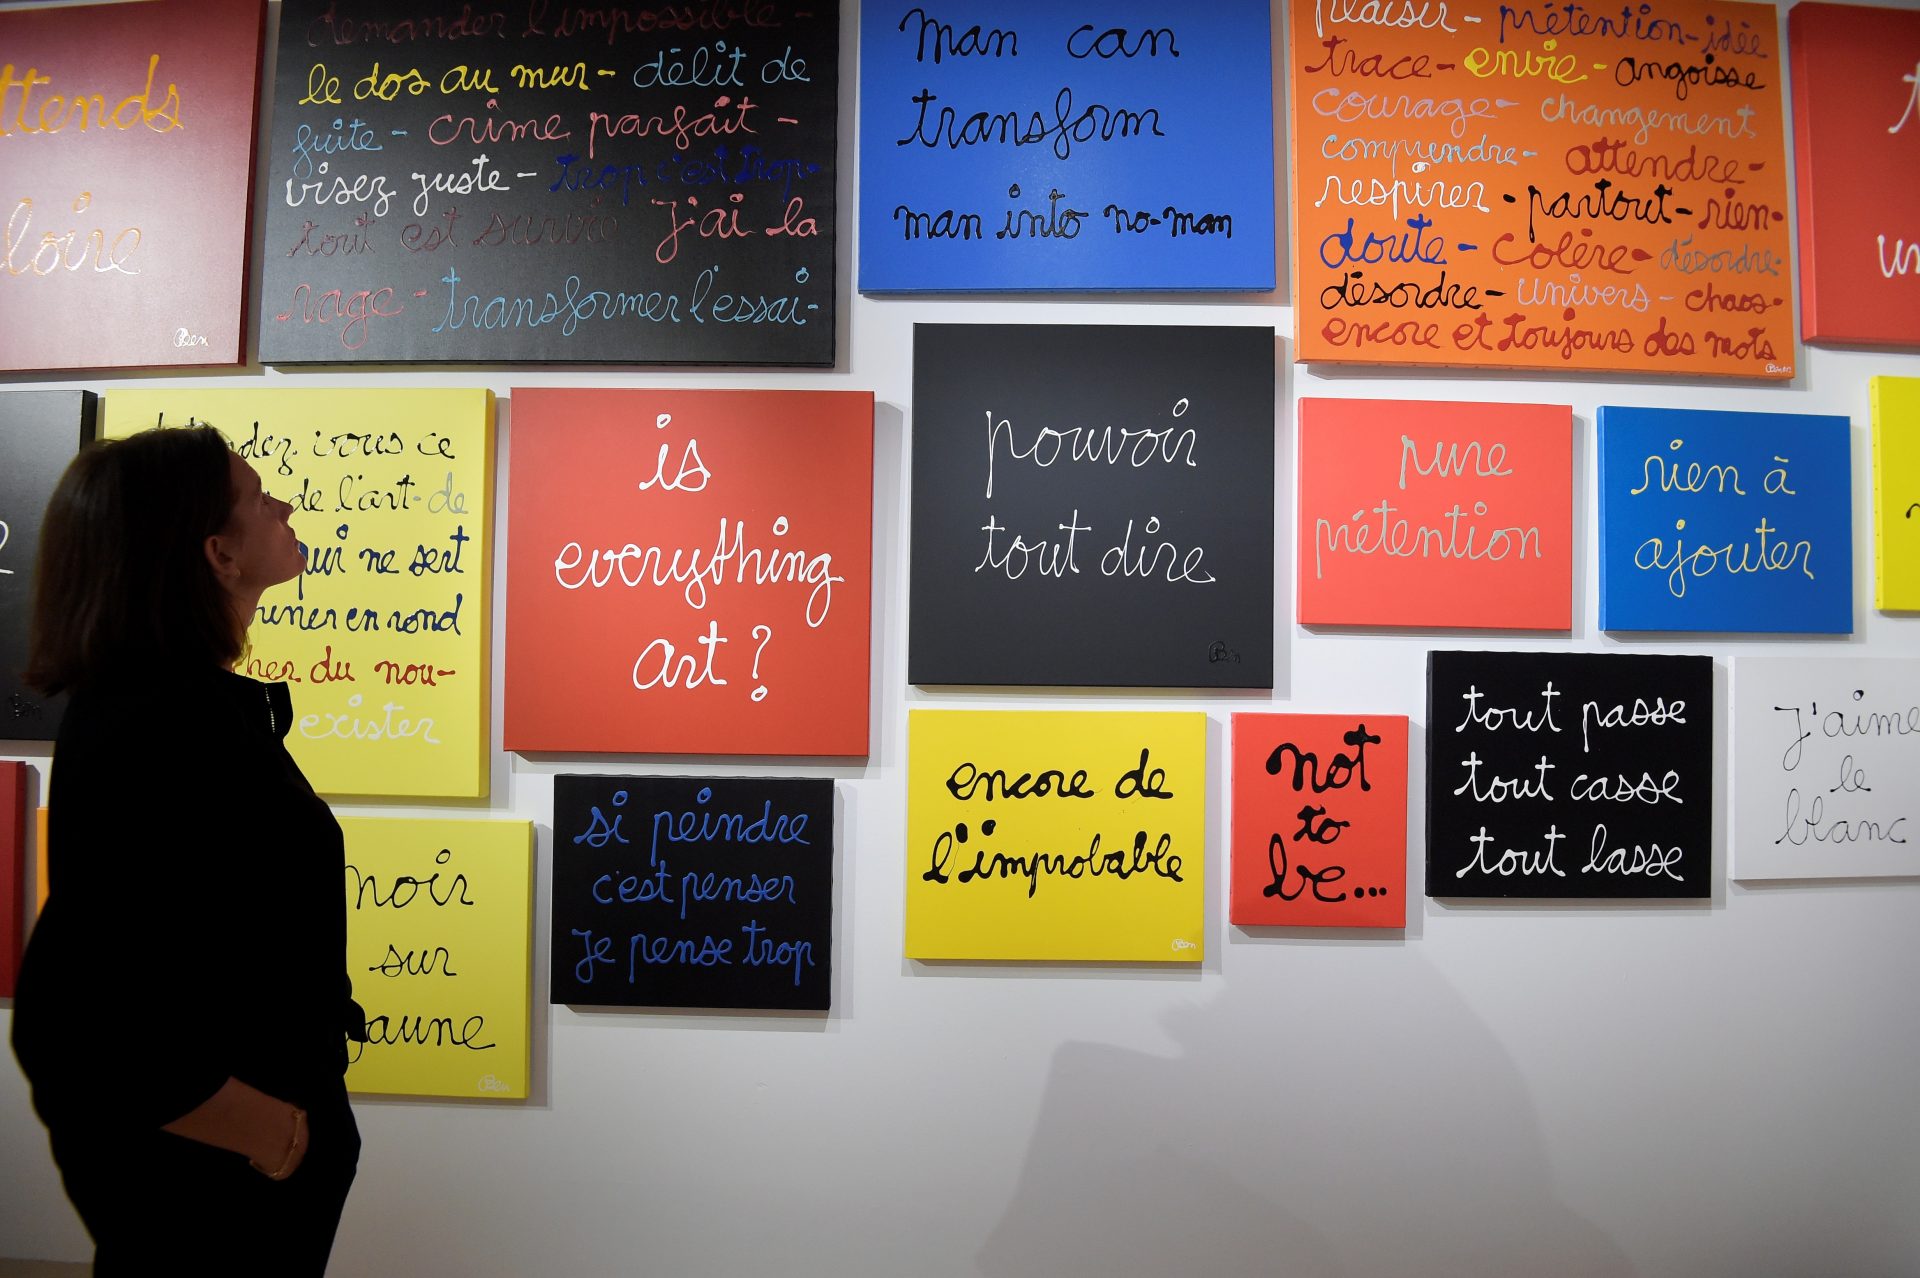 ttends
loire
Ben
demander l'impossible -
le dos au mur - délit de
fuite - crime parfait -
visez juste - trop c'est trop -
tout est survie J'ai la
rage - transformer l'essai -
man can
transform
man into no-man
plaisir - prétention - idée
trace - envie - angoisse
courage - changement
comprendre - attendre -
respirer - partout - rien -
doute - colère - désordre -
désordre - univers - chaos -
encore et toujours des mots
Ben
vous ce
de l'art - de
qui ne sert
en rond
du nou-
exister
is
everything
art ?
pouvoir
tout dire
Ben
pure
prétention
rien à
ajouter
noir
sur
jaune
Ben
si peindre
c'est penser
Je pense trop
encore de
l'improbable
Ben
not
to
be...
tout passe
tout casse
tout lasse
J'aime
le
blanc